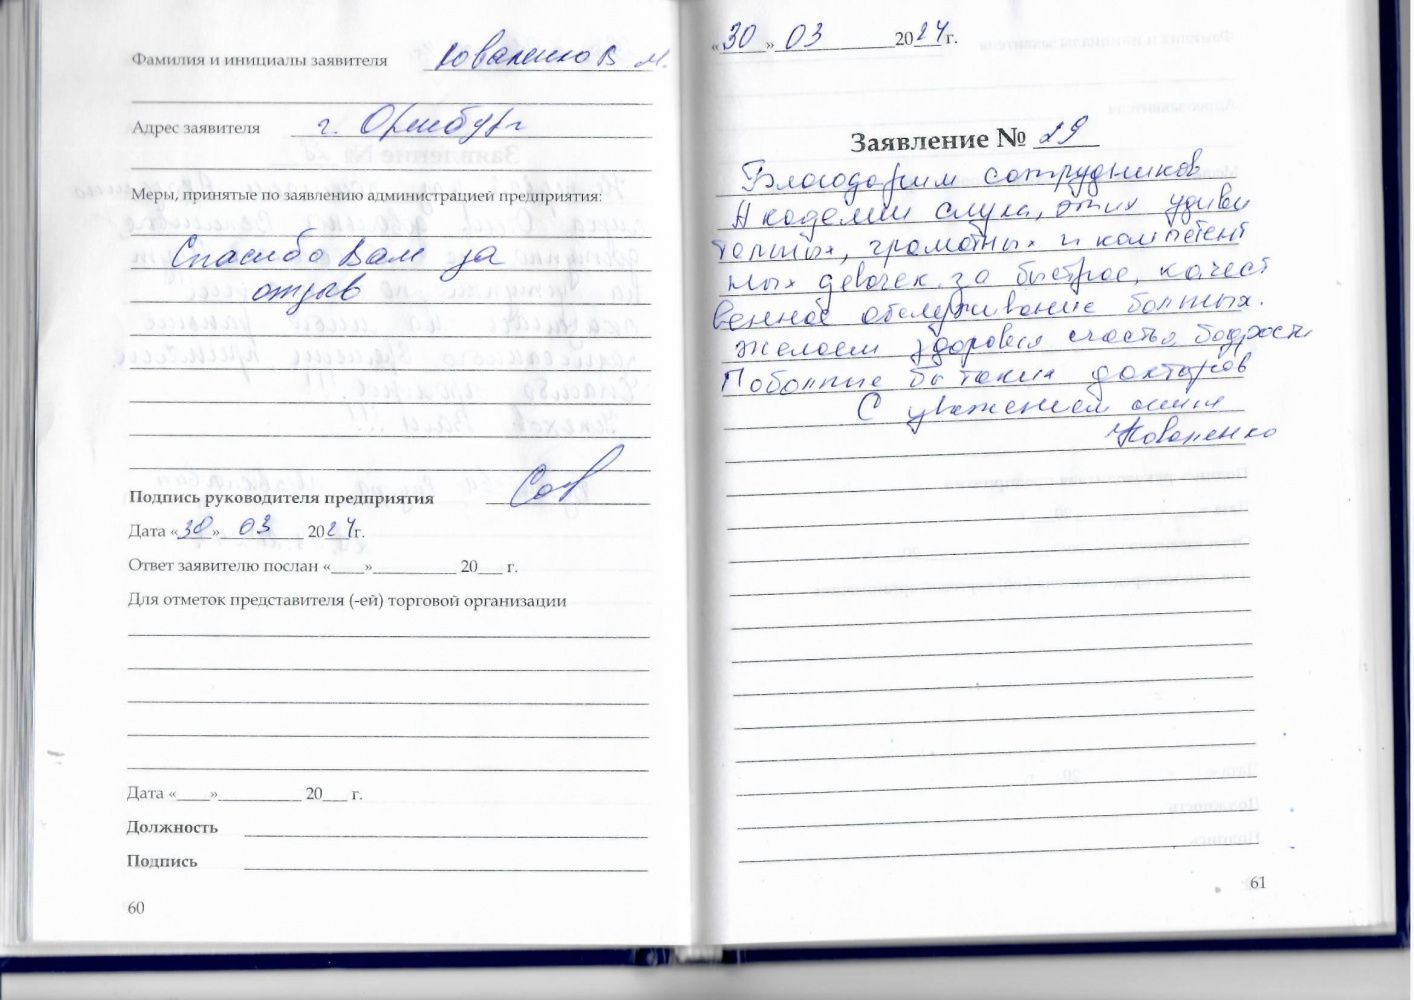 Фамилия и инициалы заявителя Коваленко В М.
Адрес заявителя г. Оренбург
Меры, принятые по заявлению администрацией предприятия:
Спасибо Вам за
отзыв
Подпись руководителя предприятия
Дата «30» 03 2024г.
Ответ заявителю послан «____»__________ 20___ г.
Для отметок представителя (-ей) торговой организации
Дата «____»__________ 20___ г.
Должность
Подпись
60
«30» 03 2024г.
Заявление № 29
Благодарим сотрудников
Академии слуха, этих удиви
тельных, грамотных и компетент
ных девочек за быстрое, качест
венное обслуживание больных.
Желаем здоровья счастья бодрости
Побольше бы таких докторов
С уважением
Коваленко
61